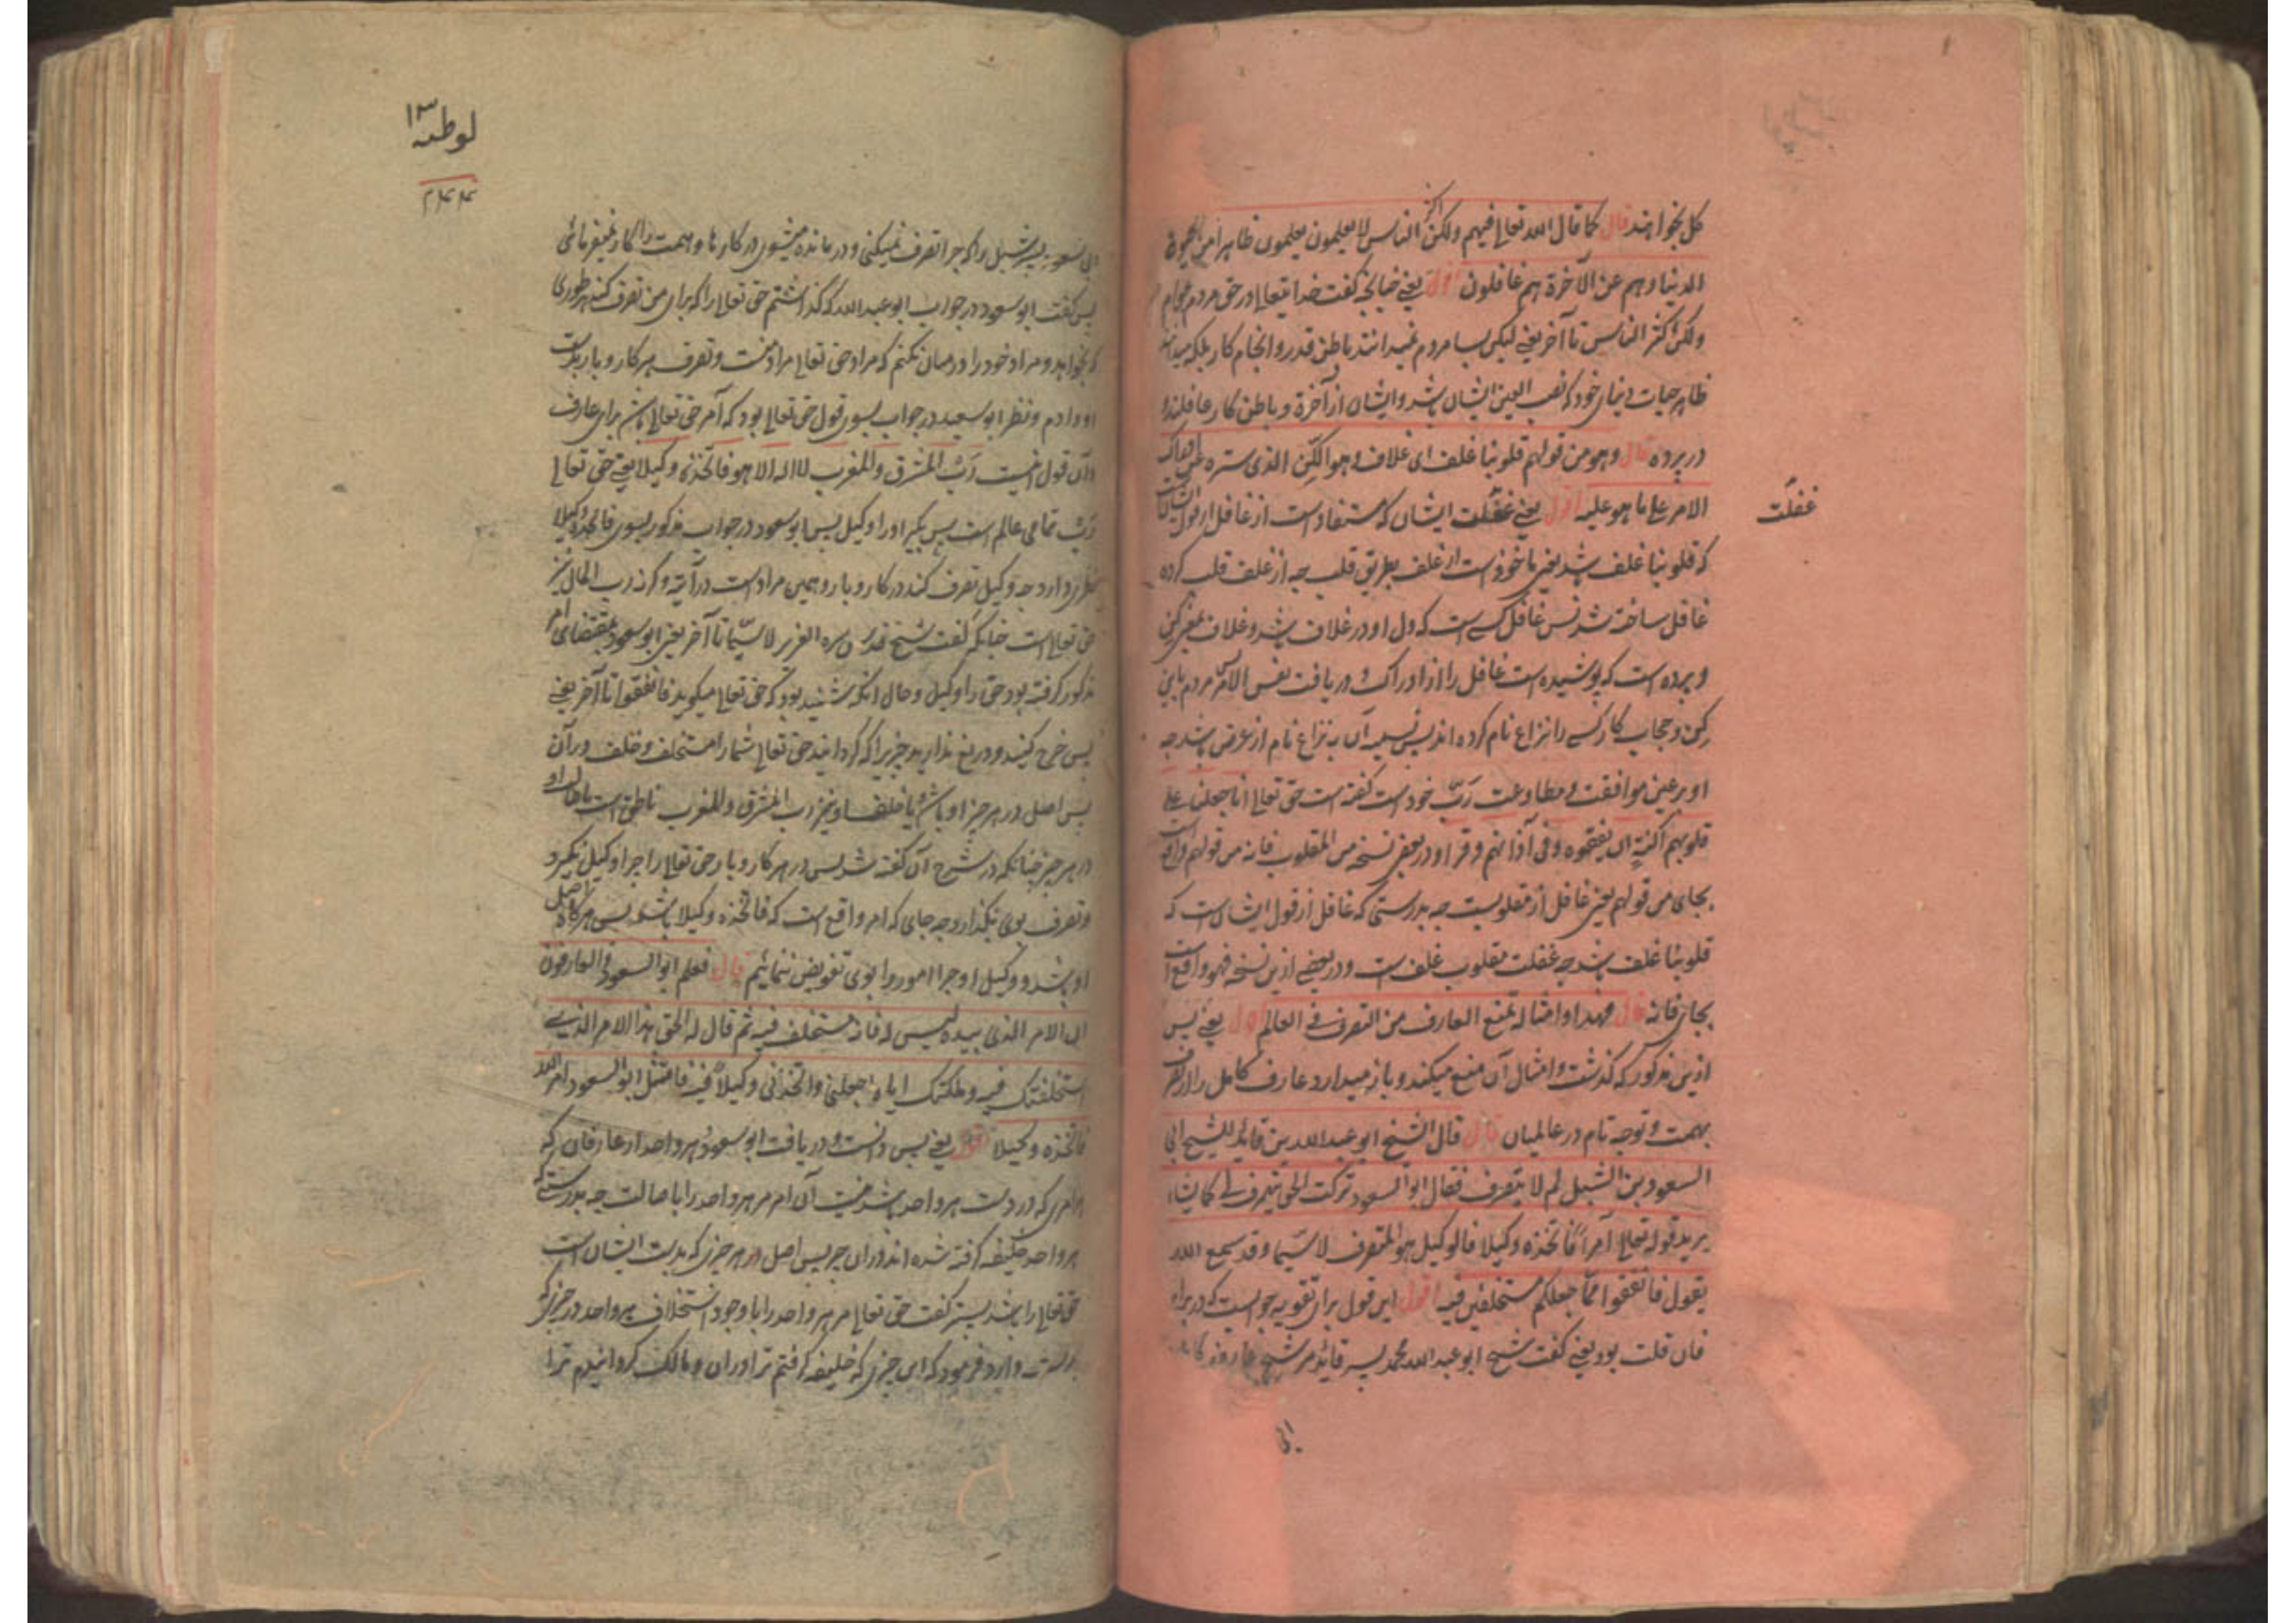 کل بخواهند قال کما قال الله تعالی فیهم ولکن اکثر الناس لا یعلمون یعلمون ظاهرا من الحیوة
الدنیا وهم عن الآخرة هم غافلون اقول یعنی چنانچه گفت خدایتعالی در حق مردم عوام
ولکن اکثر الناس تا آخر یعنی لیکن بسیا مردم نمیدانند باطن قدر و انجام کار بلکه میدانند
ظاهر حیات دنیای خود که نصب العین ایشان باشد و ایشان از آخرة و باطن کار غافلند
در پرده قال وهو من قولهم قلوبنا غلف ای غلاف وهو الکن الذی ستره عن ادراک
الامر علی ما هو علیه اقول یعنی غفلت ایشان که مستفاد است از غافل از قول ایشان است
غفلت
که قلوبنا غلف باشد یعنی ماخوذ است از غلف بطریق قلب چه از غلف قلب کرده
غافل ساخته شد پس غافل کسے است که دل او در غلاف باشد و غلاف بمعنی کن
و پرده است که پوشیده است غافل را از ادراک و دریافت نفس الامر مردم باین
کن و حجاب کار کسے را نزاع نام کرده اند پس تسمیه آن به نزاع نام از عرض باشد چه
او بر عین موافقت و مطاوعت رب خود است گفته است حق تعالی انا جعلنا علی
قلوبهم اکنة ان یفقهوه وفی آذانهم وقرا و در بعض نسخه من المقلوب فانه من قولهم واقع است
بجای من قولهم یعنی غافل از مقلوبست چه بدرستی که غافل از قول ایشان است که
قلوبنا غلف باشد چه غفلت مقلوب غلف است و در بعضے ازین نسخه فهو واقع است
بجای فانه قال فهذا وامثاله یمنع العارف من التصرف فی العالم اقول یعنی پس
ازین مذکور که گذشت و امثال آن منع میکند و باز میدارد عارف کامل را از تصرف
بهمت و توجه تام در عالمیان قال قال الشیخ ابو عبد الله بن قاید للشیخ ابی
السعود بن الشبل لم لا یتصرف فقال ابو السعود ترکت الحق یتصرف لی کما یشاء
یرید قوله تعالی آمرا فاتخذه وکیلا فالوکیل هو المتصرف لاسیما وقد سمع الله
یقول فانفقوا مما جعلکم مستخلفین فیه اقول این قول برای تقویه جوابست که در برابر
فان قلت بود یعنی گفت شیخ ابو عبد الله محمد پسر قائد مر شیخ
ابی
لوطیه ۱۳
ابی سعود پسر شبل را که چرا تصرف نمیکنی و درمانده میشوی در کارها و همت را کار نمیفرمائی
پس گفت ابو سعود در جواب ابو عبد الله که گذاشتم حق تعالی را که برای من تصرف کند بهر طوری
که بخواهد و مراد خود را در میان نکنم که مراد حق تعالی مراد منست و تصرف هر کار و بار بدست
او دادم و نظر ابو سعید در جواب بسوی قول حق تعالی بود که آمر حق تعالی باشد برای عارف
و آن قول اینست رب المشرق والمغرب لا اله الا هو فاتخذه وکیلا یعنی حق تعالی
رب تمامی عالم است پس بگیر او را وکیل پس ابو سعود در جواب مذکور بسوی فاتخذه وکیلا
نظری دارد چه وکیل تصرف کند در کار و بار و همین مراد است در آیة وگرنه رب المال نیز
حق تعالی است چنانکه گفت شیخ قدس سره العزیز لاسیما تا آخر یعنی ابو سعود بمقتضای امر
مذکور گرفته بود حق را وکیل و حال آنکه شنیده بود که حق تعالی میگوید فانفقوا تا آخر یعنی
پس خرج کنید و دریغ ندارید چیزیرا که گردانید حق تعالی شما را مستخلف و خلف در آن
پس اصل در هر چیز او باشد یا خلف او نیز رب المشرق والمغرب ناطق است
در هر چیز چنانکه در شرح آن گفته شد پس در هر کار و بار حق تعالی را چرا وکیل نگیرد
و تصرف بوی نگذارد چه جای که امر واقع است که فاتخذه وکیلا باشد پس هرگاه اصل
او باشد و وکیل او چرا امور را بوی تفویض ننمائیم قال فعلم ابو السعود والعارفون
ان الامر الذی بیده لیس له فانه مستخلف فیه ثم قال له الحق هذا الامر الذی
استخلفتک فیه وملکتک ایاه واجعلنی واتخذنی وکیلا فیه فامتثل ابو السعود امر الله
فاتخذه وکیلا اقول یعنی پس دانست و دریافت ابو سعود و هر واحد از عارفان که
امری که در دست هر واحد باشد نیست آن امر مر هر واحد را باصالت چه بدرستے که
هر واحد خلیفه گرفته شده اند در آن چیز پس اصل در هر چیزی که بدست ایشان است
حق تعالی را باشد پستر گفت حق تعالی مر هر واحد را با وجود استخلاف هر واحد در چیزی که
بدست دارد فرمود که این چیزی که خلیفه گرفتم ترا در آن و مالک گردانیدم ترا